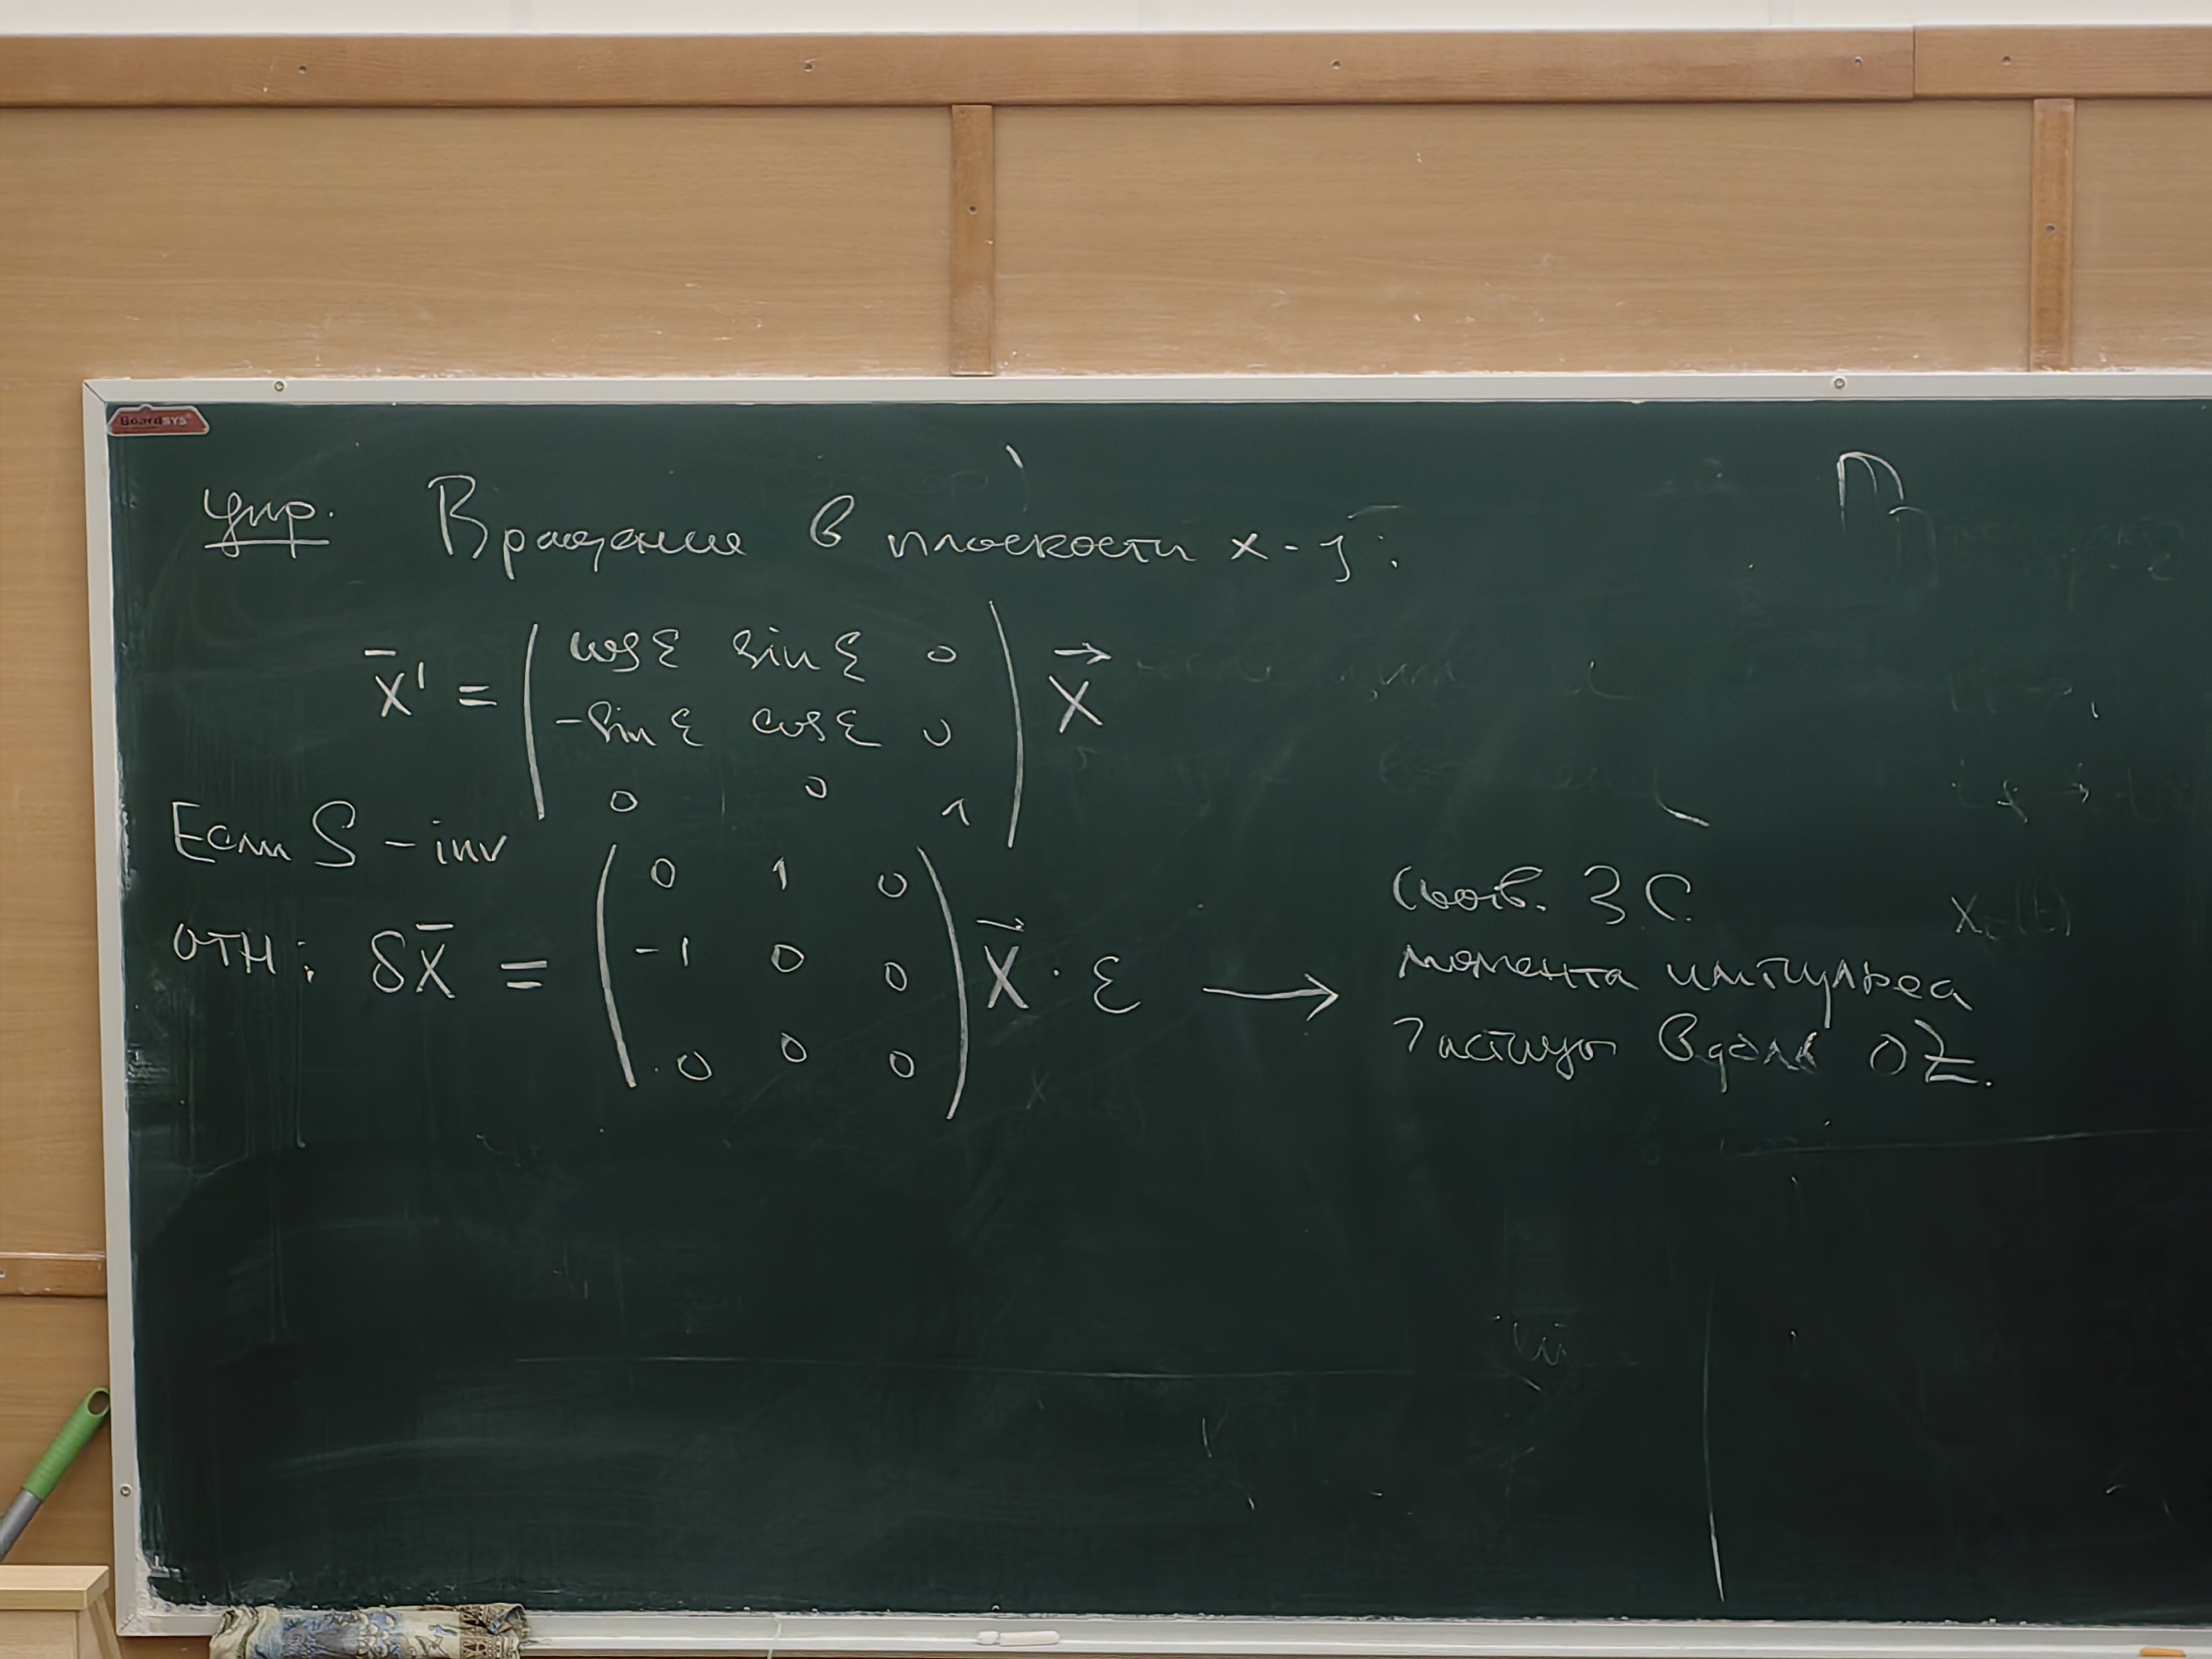 BoardSYS
Упр. Вращение в плоскости x-y:
x̄' = ( cos ε sin ε 0
-sin ε cos ε 0
0 0 1 ) x⃗
Если S - inv
отн: δx̄ = ( 0 1 0
-1 0 0
0 0 0 ) x⃗ · ε → соотв. З.С.
момента импульса
частицы вдоль OZ.